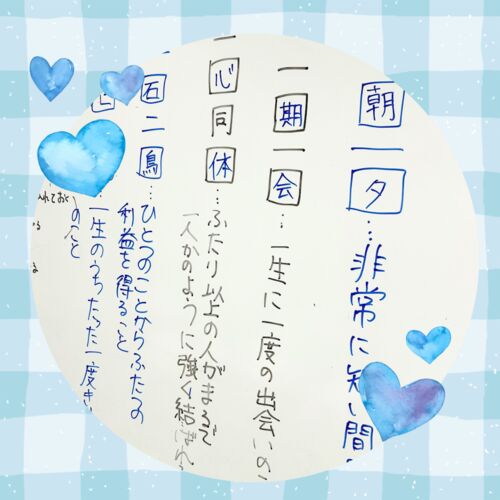 朝一夕…非常に短い間
一期一会…一生に一度の出会いの
一心同体…ふたり以上の人がまるで
一人かのように強く結ばれ
石二鳥…ひとつのことからふたつの
利益を得ること
一生のうちたった一度き
のこと